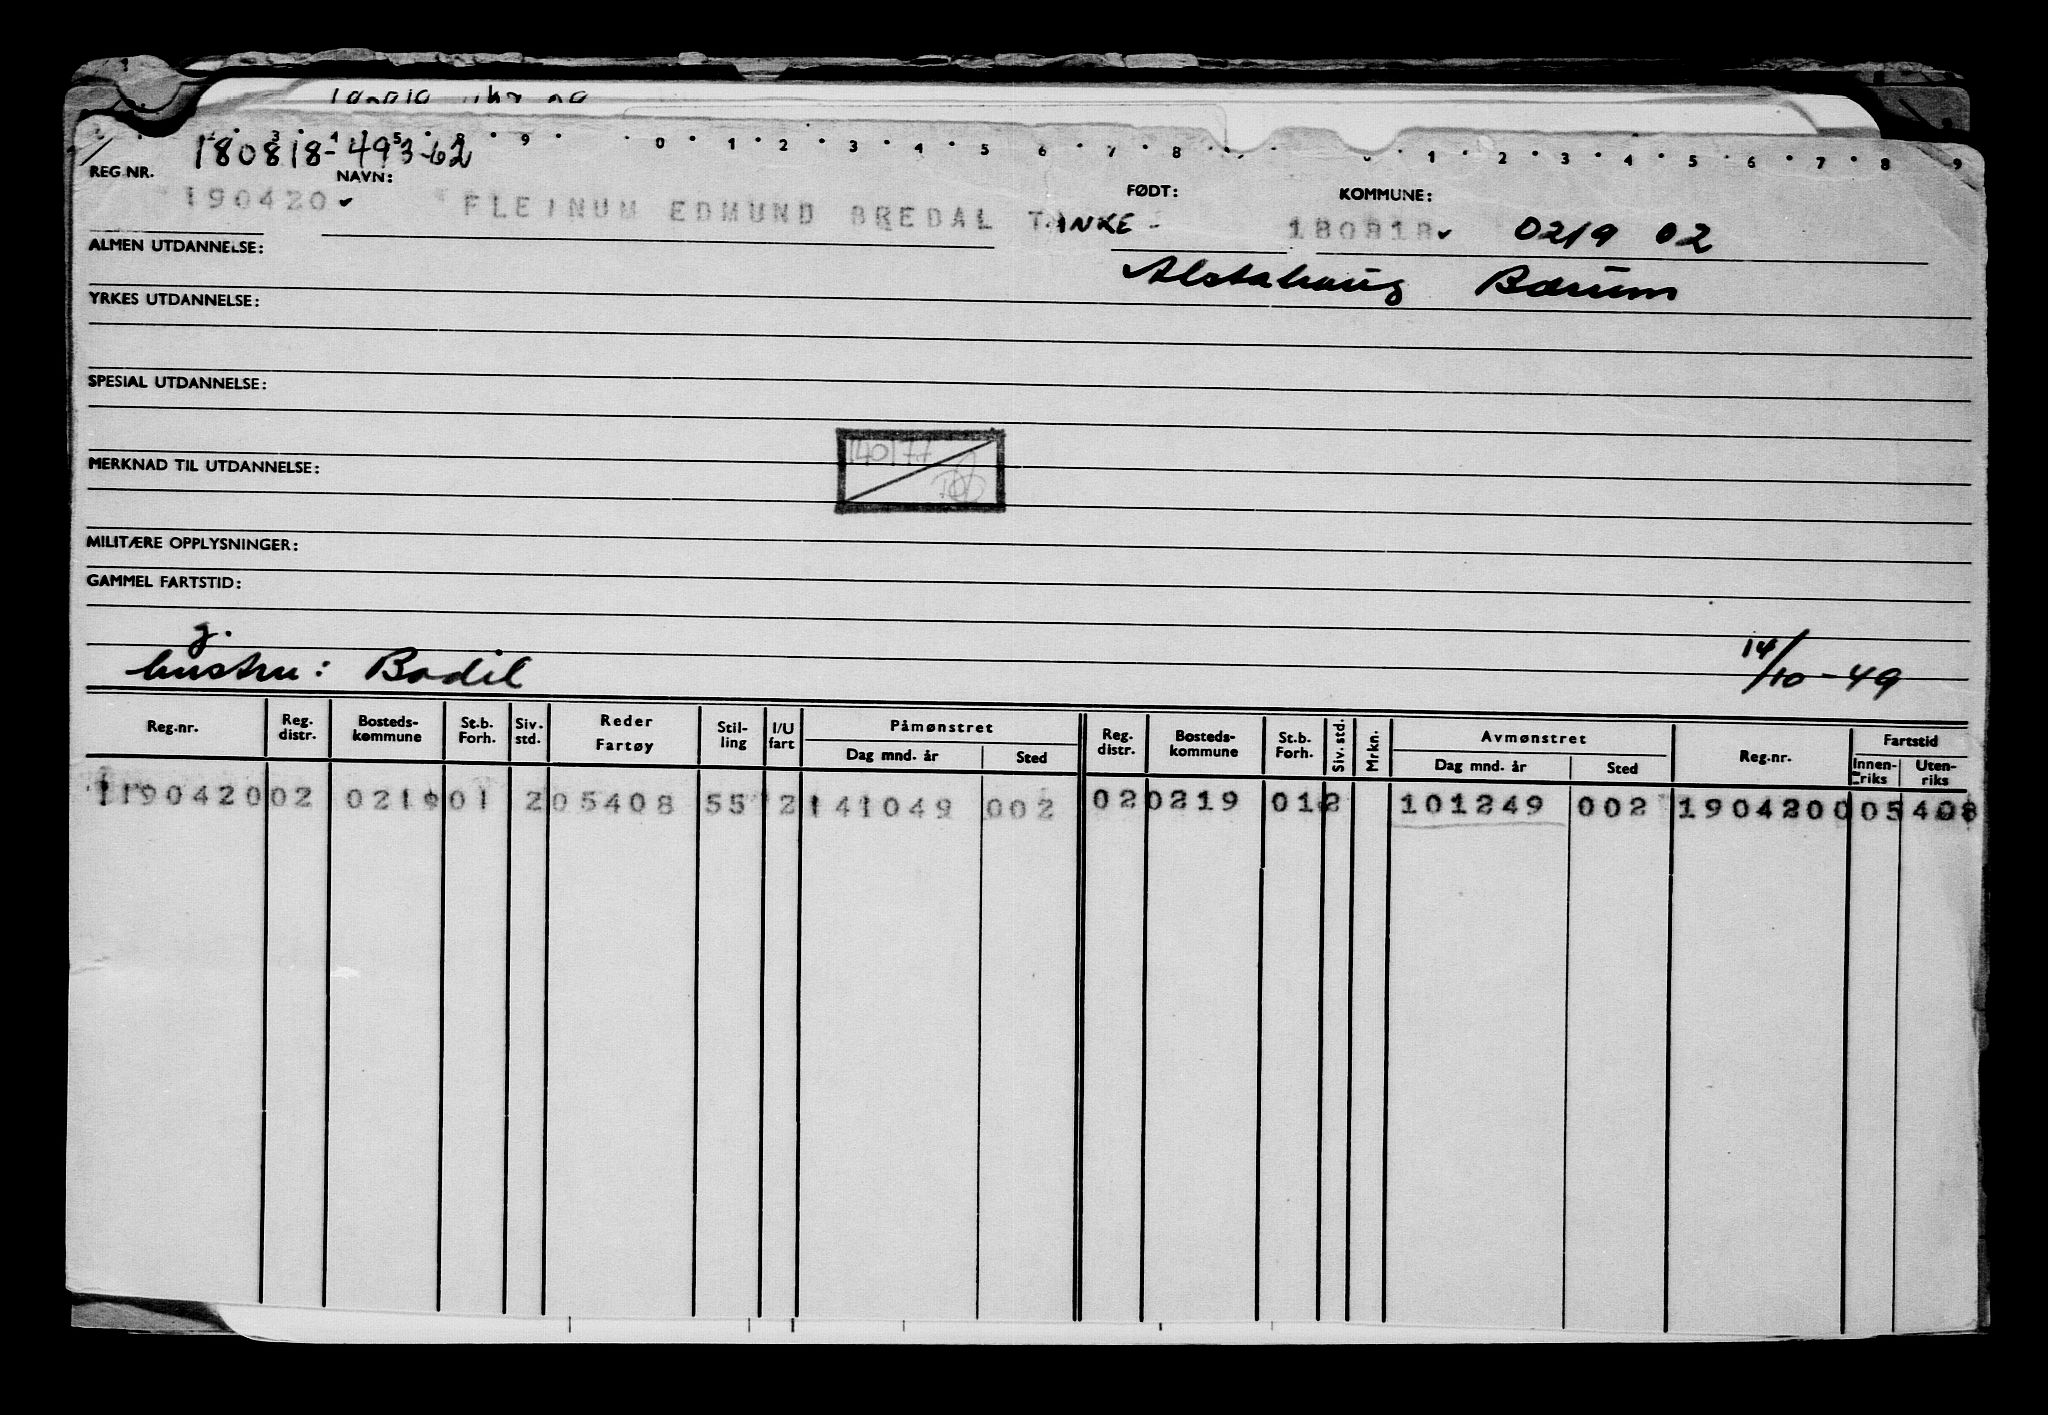 3 4 5 8 9 0 1 2 3 4 5 6 7 8 0 1 2 3 4 5 6 7 8 9
180818-49362
REG.NR. NAVN: FØDT: KOMMUNE:
190420 FLEINUM EDMUND BREDAL TANKE 180818 0219 02
ALMEN UTDANNELSE: Alstahaug Bærum
YRKES UTDANNELSE:
SPESIAL UTDANNELSE:
140177
MERKNAD TIL UTDANNELSE:
MILITÆRE OPPLYSNINGER:
GAMMEL FARTSTID:
g.
hustru: Bodil 14/10-49
Reg.nr. Reg. distr. Bosteds-kommune St.b. Forh. Siv. std. Reder Fartøy Stil-ling I/U fart Påmønstret Dag mnd. år Sted Reg. distr. Bosteds-kommune St.b. Forh. Siv. std. Mrkn. Avmønstret Dag mnd. år Sted Reg.nr. Fartstid Innen-riks Uten-riks
119042002 0219 01 2 05408 55 2 141049 002 02 0219 01 2 101249 002 1904200 05408